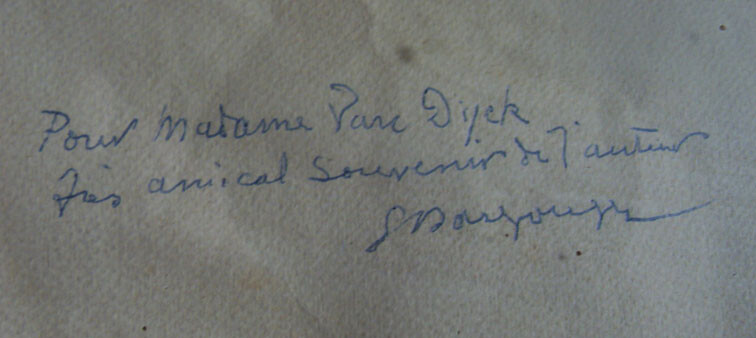 Pour Madame Van Dyck
très amical souvenir de l'auteur